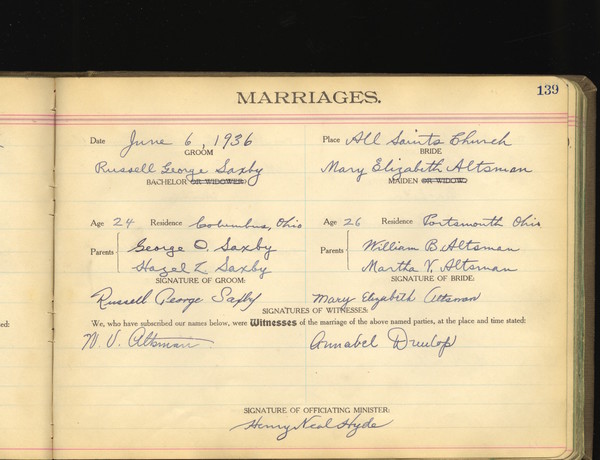 139
MARRIAGES.
Date June 6, 1936 Place All Saints Church
GROOM BRIDE
Russell George Saxby Mary Elizabeth Altsman
BACHELOR OR WIDOWER MAIDEN OR WIDOW
Age 24 Residence Columbus, Ohio Age 26 Residence Portsmouth Ohio
Parents George O. Saxby Parents William B Altsman
Hazel L Saxby Martha V. Altsman
SIGNATURE OF GROOM: SIGNATURE OF BRIDE:
Russell George Saxby Mary Elizabeth Altsman
SIGNATURES OF WITNESSES:
ed: We, who have subscribed our names below, were Witnesses of the marriage of the above named parties, at the place and time stated:
Altsman Annabel Dunlop
SIGNATURE OF OFFICIATING MINISTER:
Henry Neal Hyde